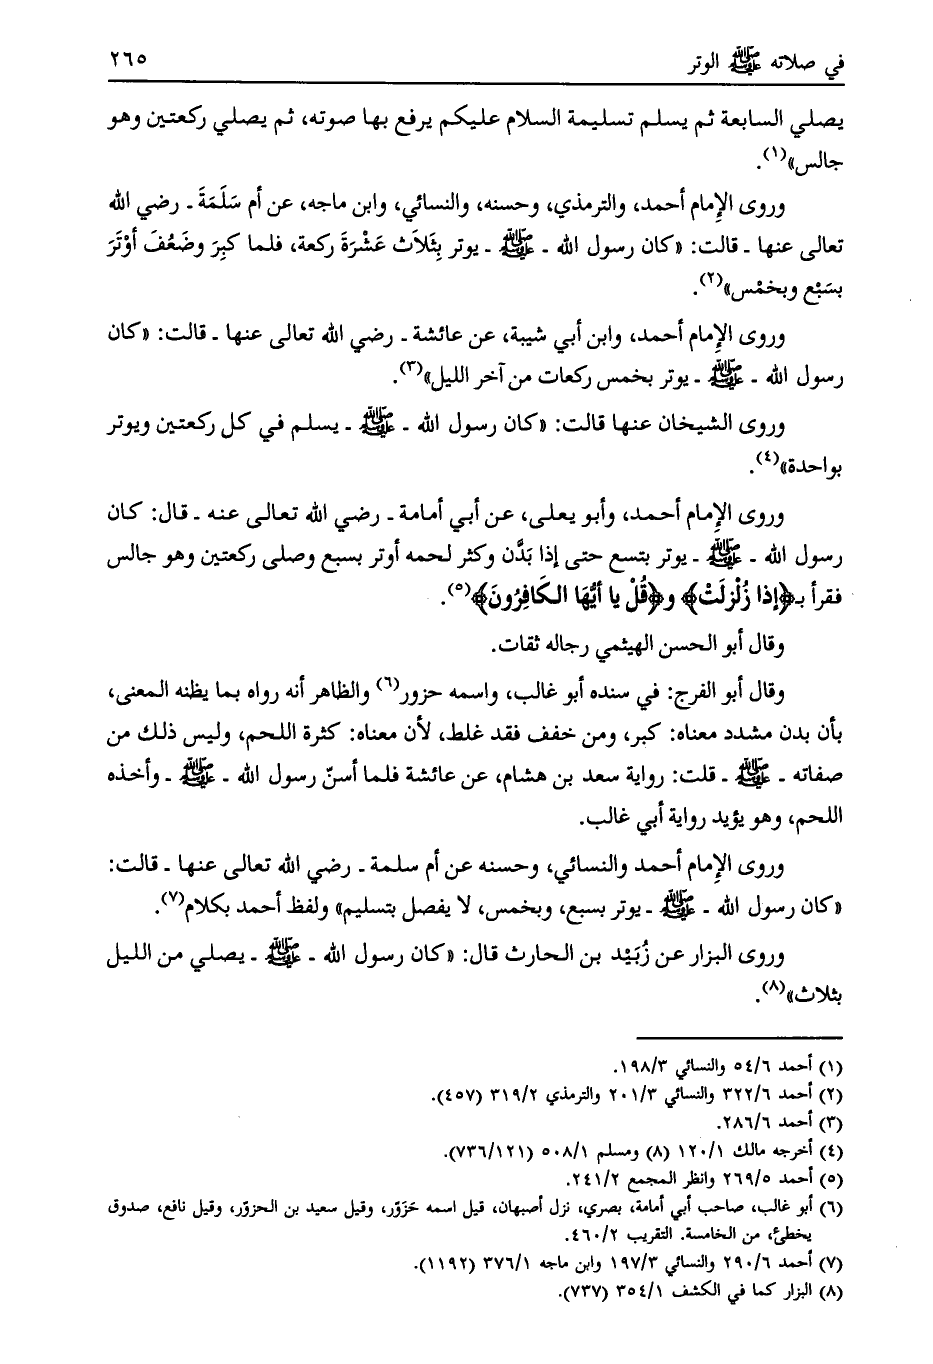 في صلاته ﷺ الوتر ٢٦٥
يصلي السابعة ثم يسلم تسليمة السلام عليكم يرفع بها صوته، ثم يصلي ركعتين وهو
جالس»(١).
وروى الإِمام أحمد، والترمذي، وحسنه، والنسائي، وابن ماجه، عن أم سَلَمَةَ ـ رضي الله
تعالى عنها ـ قالت: «كان رسول الله ـ ﷺ ـ يوتر بِثَلاَث عَشْرَةَ ركعة، فلما كبِرَ وضَعُفَ أوْتَرَ
بسَبْع وبخمْس»(٢).
وروى الإِمام أحمد، وابن أبي شيبة، عن عائشة ـ رضي الله تعالى عنها ـ قالت: «كان
رسول الله ـ ﷺ ـ يوتر بخمس ركعات من آخر الليل»(٣).
وروى الشيخان عنها قالت: «كان رسول الله ـ ﷺ ـ يسلم في كل ركعتين ويوتر
بواحدة»(٤).
وروى الإِمام أحمد، وأبو يعلى، عن أبي أمامة ـ رضي الله تعالى عنه ـ قال: كان
رسول الله ـ ﷺ ـ يوتر بتسع حتى إذا بَدَّن وكثر لحمه أوتر بسبع وصلى ركعتين وهو جالس
فقرأ بـ﴿إذا زُلْزِلَتْ﴾ و﴿قُلْ يا أيُّهَا الكَافِرُونَ﴾(٥).
وقال أبو الحسن الهيثمي رجاله ثقات.
وقال أبو الفرج: في سنده أبو غالب، واسمه حزور(٦) والظاهر أنه رواه بما يظنه المعنى،
بأن بدن مشدد معناه: كبر، ومن خفف فقد غلط، لأن معناه: كثرة اللحم، وليس ذلك من
صفاته ـ ﷺ ـ قلت: رواية سعد بن هشام، عن عائشة فلما أسنّ رسول الله ـ ﷺ ـ وأخذه
اللحم، وهو يؤيد رواية أبي غالب.
وروى الإِمام أحمد والنسائي، وحسنه عن أم سلمة ـ رضي الله تعالى عنها ـ قالت:
«كان رسول الله ـ ﷺ ـ يوتر بسبع، وبخمس، لا يفصل بتسليم» ولفظ أحمد بكلام(٧).
وروى البزار عن زُبَيْد بن الحارث قال: «كان رسول الله ـ ﷺ ـ يصلي من الليل
بثلاث»(٨).
(١) أحمد ٥٤/٦ والنسائي ١٩٨/٣.
(٢) أحمد ٣٢٢/٦ والنسائي ٢٠١/٣ والترمذي ٣١٩/٢ (٤٥٧).
(٣) أحمد ٢٨٦/٦.
(٤) أخرجه مالك ١٢٠/١ (٨) ومسلم ٥٠٨/١ (٧٣٦/١٢١).
(٥) أحمد ٢٦٩/٥ وانظر المجمع ٢٤١/٢.
(٦) أبو غالب، صاحب أبي أمامة، بصري، نزل أصبهان، قيل اسمه حَزَوّر، وقيل سعيد بن الحزوّر، وقيل نافع، صدوق
يخطئ، من الخامسة. التقريب ٤٦٠/٢.
(٧) أحمد ٢٩٠/٦ والنسائي ١٩٧/٣ وابن ماجه ٣٧٦/١ (١١٩٢).
(٨) البزار كما في الكشف ٣٥٤/١ (٧٣٧).